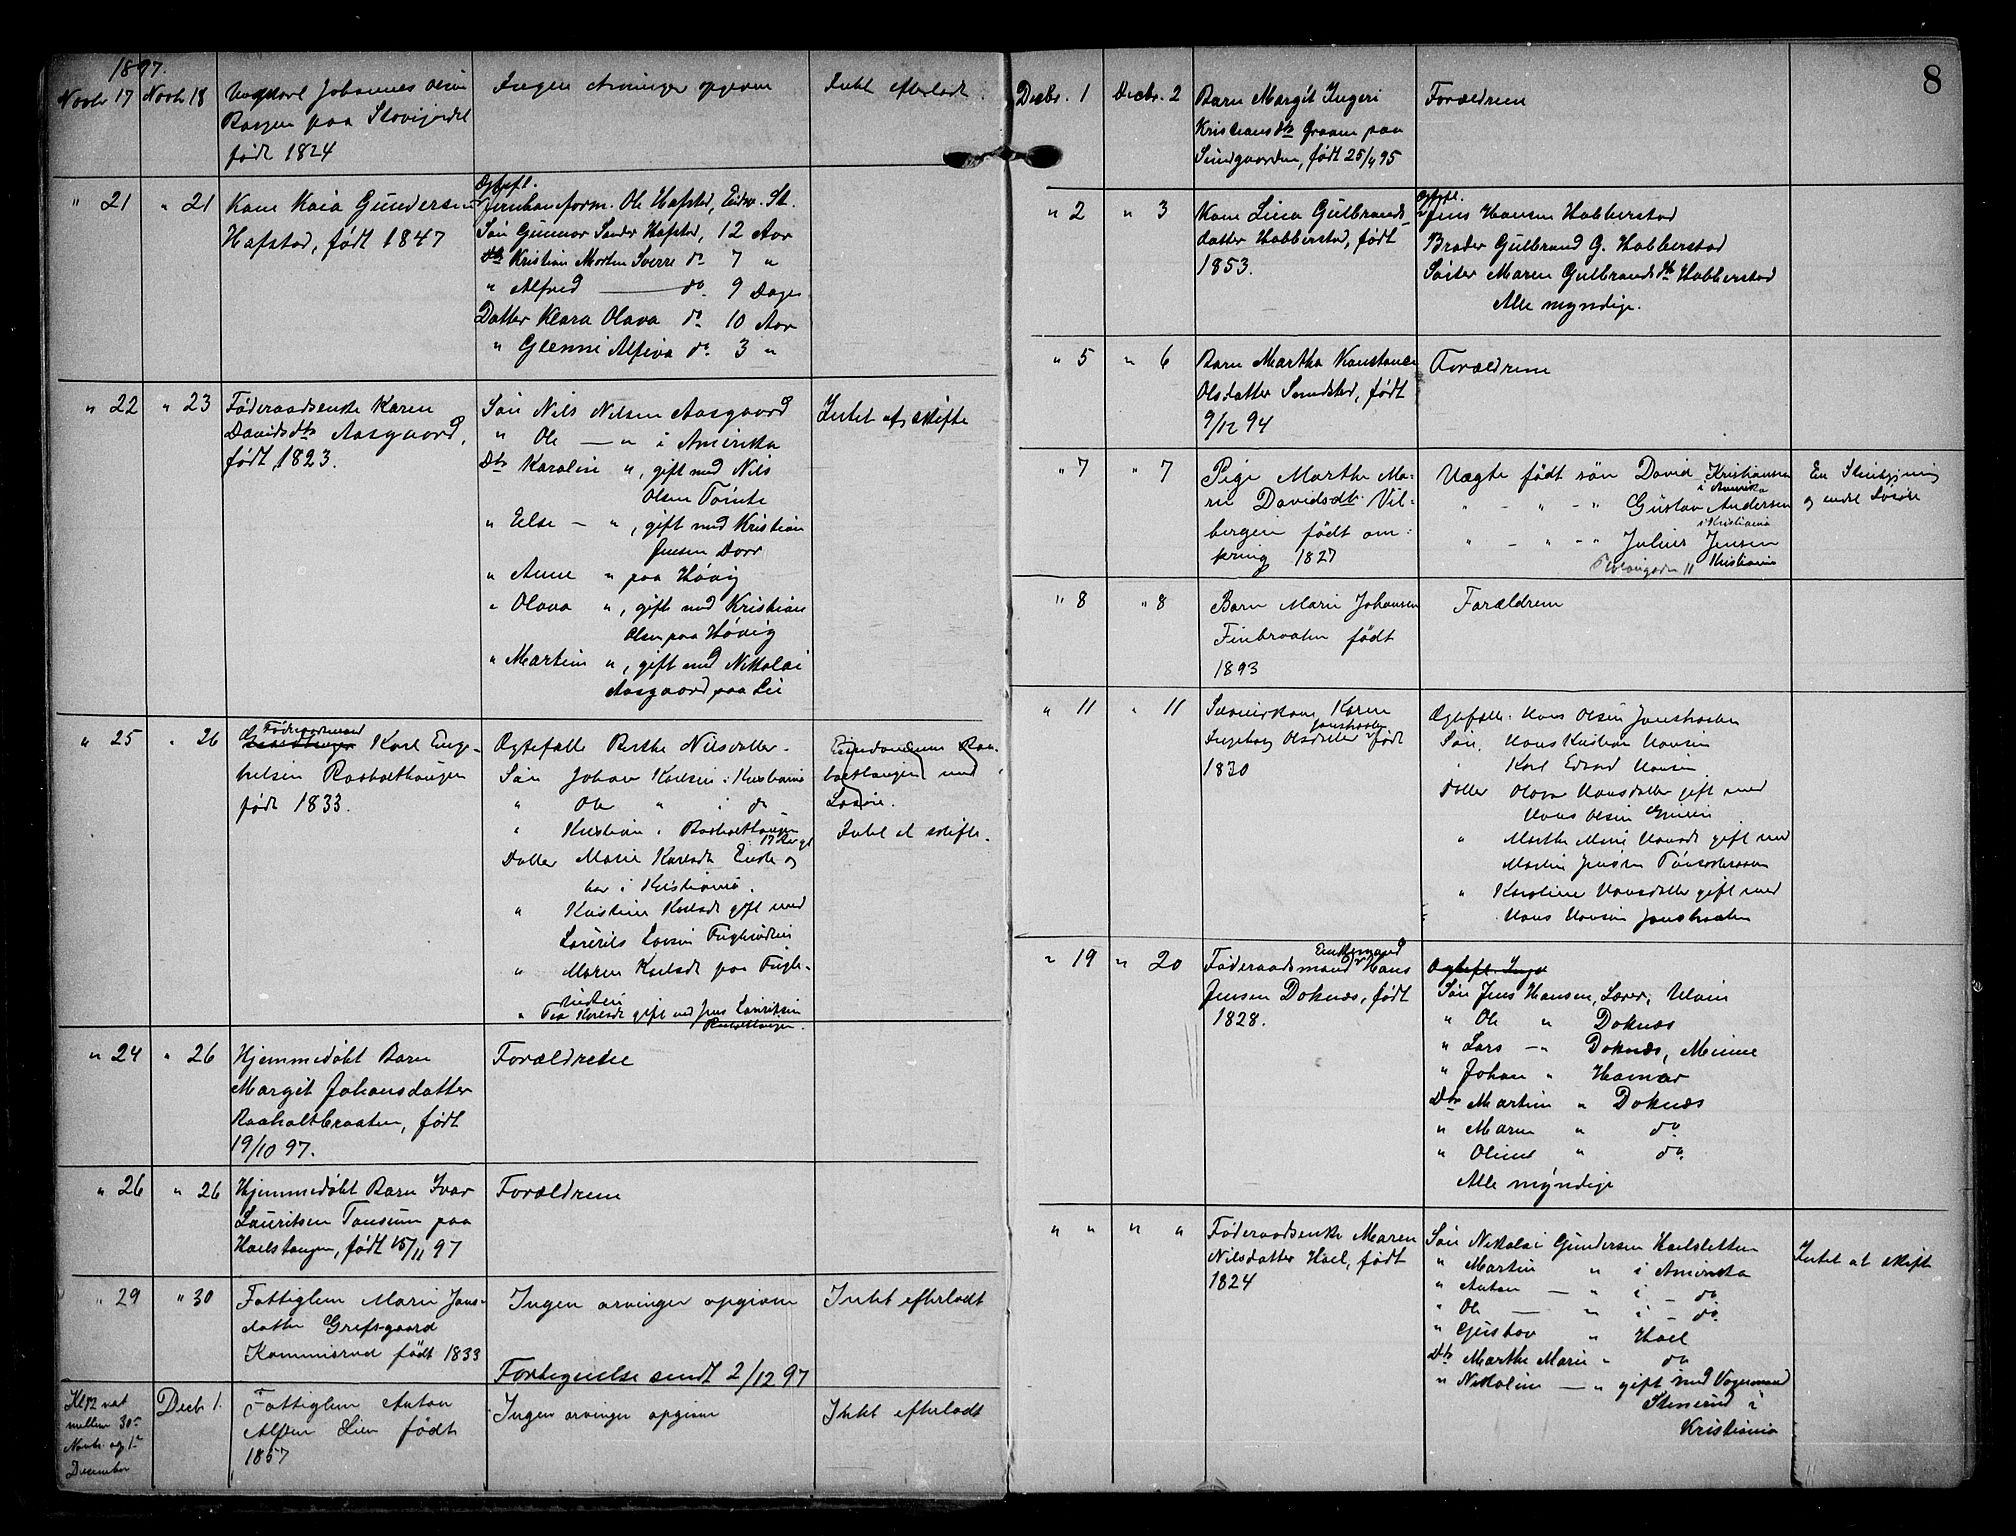 1897.
Novbr 17
Novb 18
Ungkarl Johannes Olsen
paa
født 1824
Ingen Arvinger opgivne
Intet efterladt.
" 21
" 21
Kone Kaia Gundersen
Hafstad, født 1847
Ægtef.
Ole Hafstad, Eidsv. St.
Søn Gunnar Hafstad, 12 Aar
do Kristian Morten Sverre do 7 "
" Alfred — do. 9 Dage
Datter Klara Olava do 10 Aar
" do. 3 "
" 22
" 23
Føderaadsenke Karen
Davidsdtr Aasgaard,
født 1823.
Søn Nils Nilsen Aasgaard
" Ole — " i Amerika
Dtr Karoline ", gift med Nils
Olsen Tömte
" Else — ", gift med Kristian
Jensen Dorr
" Anne " paa Høvig
" Olava ", gift med Kristian
Olsen paa Høvig
" Martine ", gift med Nikolai
Aasgaard paa Lie
Intet at skifte
" 25
" 26
Føderaadsmand
Karl Enge-
bretsen Raaholthaugen
født 1833.
Ægtefælle Berthe Nilsdatter.
Søn Johan Karlsen i Kristiania
" Ole " i do
" Kristian i Raaholthaugen
17 Aar gl
Datter Marie Karlsdt Enke og
bor i Kristiania.
" Kristine Karlsdt gift med
" Maren Karlsdt paa Fugle-
" Karlsdt gift med Jens Lauritsen
Raaholthaugen.
Eiendommen Raa-
holthaugen med
Løsøre.
Intet at skifte.
" 24
" 26
Hjemmedøbt Barn
Margit Johansdatter
Raaholtbraaten, født
19/10 97.
Forældrene
" 26
" 26
Hjemmedøbt Barn Ivar
Lauritsen Tønsum paa
født 15/11 97
Forældrene
" 29
" 30
Fattiglem Marie Jans-
datter Grefsgaard
Kommisrud født 1833
Ingen arvinger opgivne
Intet efterladt
Fortegnelse sendt 2/12 97
Kl 12 nat
mellem 30te
Novbr og 1te
December
Decb 1.
Fattiglem Anton
Alfsen Lien født
1857
Ingen arvinger opgivne
Intet efterladt
8
Decbr. 1
Decbr. 2
Barn Margit Ingeri
Kristiansdtr Graven paa
Sundgaarden, født 25/11 95
Forældrene
" 2
" 3
Kone Lina Gulbrands-
datter Habberstad, født
1853.
Ægtef.
Jens Hansen Habberstad
Broder Gulbrand G. Habberstad
Søster Maren Gulbrandsdtr Habberstad
Alle myndige.
" 5
" 6
Barn Martha Konstance
Olsdatter Sundstad, født
9/12 94
Forældrene
" 7
" 7
Pige Marthe Ma-
rie Davidsdtr Vil-
bergen født om-
kring 1827
Uægte født søn David Kristiansen
i Amerika
" - " - " Gustav Andersen
i Kristiania
" - " - " Julius Jensen
11 Kristiania
En
og endel Løsøre
" 8
" 8
Barn Marie Johansen
Finbraaten født
1893
Forældrene
" 11
" 11
Karen
Ingeborg Olsdatter født
1830
Ægtefælle: Hans Olsen
Søn, Hans Kristian Hansen
" Karl Edvard Hansen
Datter Olava Hansdatter gift med
Hans Olsen
" Marthe Marie Hansdt gift med
Martin Jensen
" Karoline Hansdatter gift med
Hans Hansen
" 19
" 20
Enkemand
Føderaadsmand Hans
Jensen Doknæs, født
1828.
Ægtef.
Søn Jens Hansen, Lærer, Ulvin
" Ole " Doknæs
" Lars — " Doknæs, Minne
" Johan " Hamar
Dtr Martine " Doknæs
" Maren " do.
" Oline " do.
Alle myndige
" "
" "
Føderaadsenke Maren
Nilsdatter Hoel, født
1824
Søn Nikolai Gundersen Hoelsletten
" Martin " i Amerika
" Anton — " i — do
" Ole — " i — do.
" Gustav " Hoel
Dtr Marthe Marie " do
" Nikoline — " gift med Vognmand
Stenerud i
Kristiania
Intet at skifte